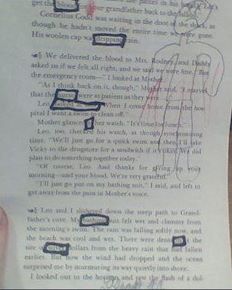 get the blood
grandfather back to the
Cornelius Godd was waiting in the door of the shack, as
though he hadn't moved the entire time we were gone.
His woolen cap was dripping
We delivered the blood to Mrs. Rodney, and Daddy
asked us if we felt all right, and we said we were fine. "But
the emergency room—" I looked at Mother.
"As I think back on it, though," Mother said, "I
that the nurses were as patient as they
When I come home from the hos-
pital I want a swim to clean off."
Mother glanced at her watch. "It's time for
Leo, too, checked his watch, as though synchronizing
time. "We'll just go for a quick swim and then I'll
Vicky to the drugstore for a sandwich if it's okay. We did
plan to do something together today."
"Of course, Leo. And thanks for giving up your
morning—and your blood. We're very grateful."
"I'll just go put on my bathing suit," I said, and left to
get away from the pain in Mother's voice.
Leo and I slithered down the steep path to Grand-
father's cove. My bathing suit felt wet and clammy from
the morning's swim. The rain was falling softly now, and
the beach was cool and wet. There were dents
size of silver dollars from the heavy rain that had fallen
earlier. But now the wind had dropped and the ocean
surprised me by murmuring in very quietly into shore.
I looked out to the horizon and saw the flash of a dol-